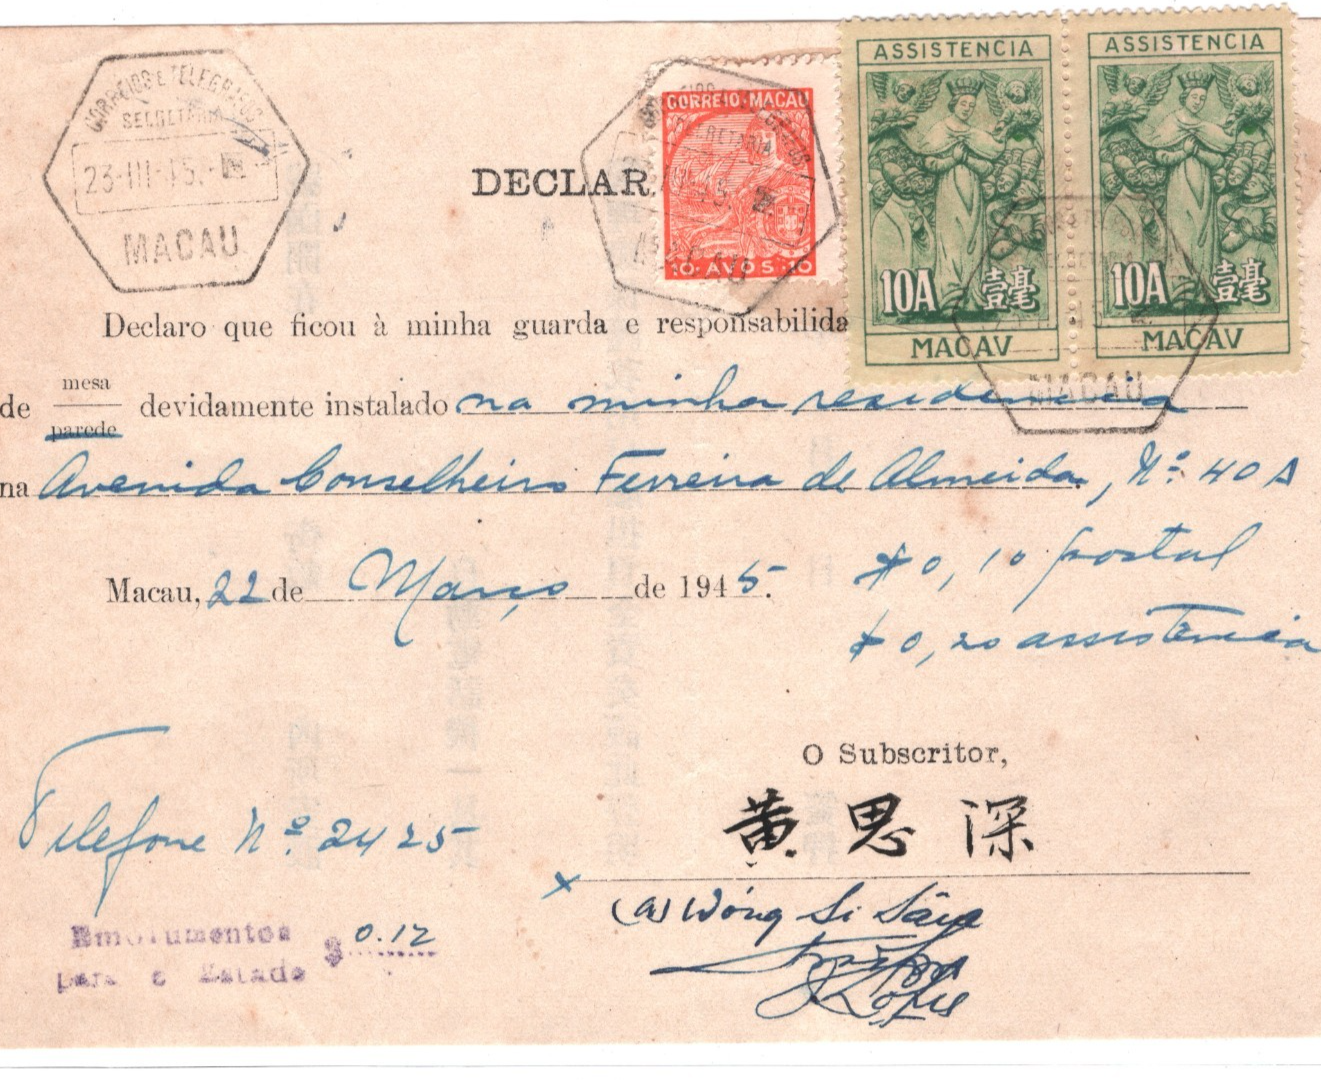 CORREIOS E TELEGRAFOS
SECRETARIA
23-III-45
MACAU
DECLAR
CORREIO·MACAU
10·AVOS·10
ASSISTENCIA
10A 壹毫
MACAV
ASSISTENCIA
10A 壹毫
MACAV
MACAU
Declaro que ficou à minha guarda e responsabilida
de mesa parede devidamente instalado na minha residencia
na Avenida Conselheiro Ferreira de Almeida, Nº 40 A
Macau, 22 de Março de 1945.
$0,10 postal
$0,20 assistência
O Subscritor,
黄思深
Telefone Nº 2425
x
(a) Wóng Si Sâm
Emolumentos
para o Estado $ 0.12
Lopes